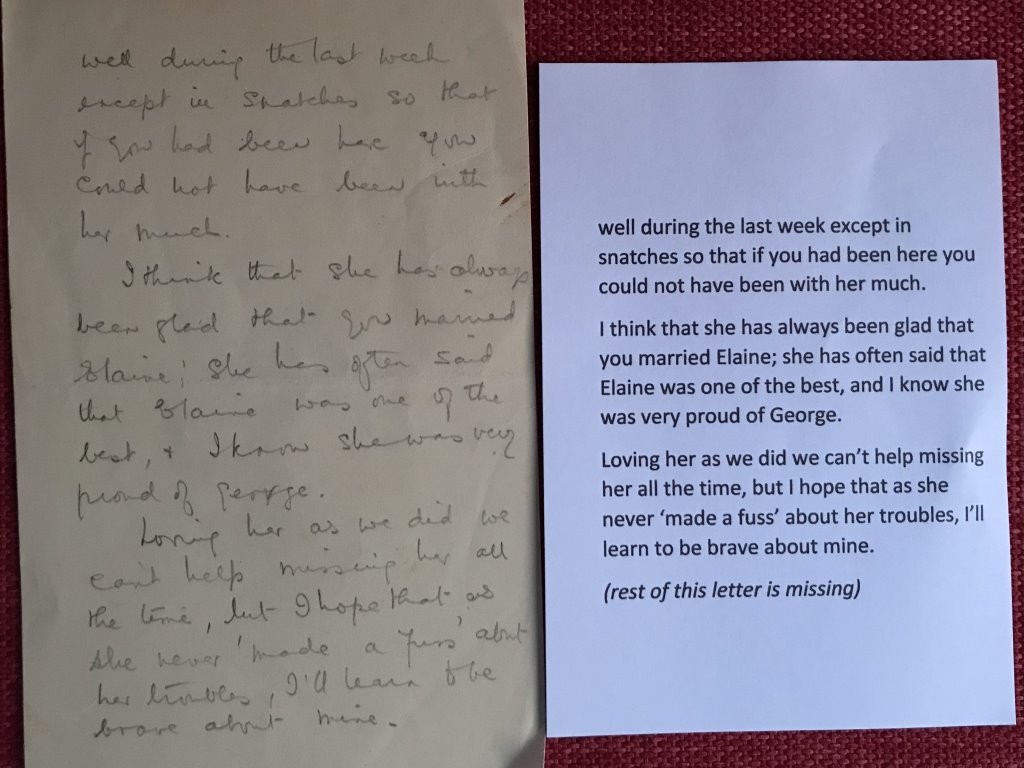 well during the last week
except in snatches so that
if you had been here you
could not have been with
her much.
I think that she has always
been glad that you married
Elaine; she has often said
that Elaine was one of the
best, + I know she was very
proud of George.
Loving her as we did we
can't help missing her all
the time, but I hope that as
she never 'made a fuss' about
her troubles, I'll learn to be
brave about mine.
well during the last week except in
snatches so that if you had been here you
could not have been with her much.
I think that she has always been glad that
you married Elaine; she has often said that
Elaine was one of the best, and I know she
was very proud of George.
Loving her as we did we can’t help missing
her all the time, but I hope that as she
never ‘made a fuss’ about her troubles, I’ll
learn to be brave about mine.
(rest of this letter is missing)